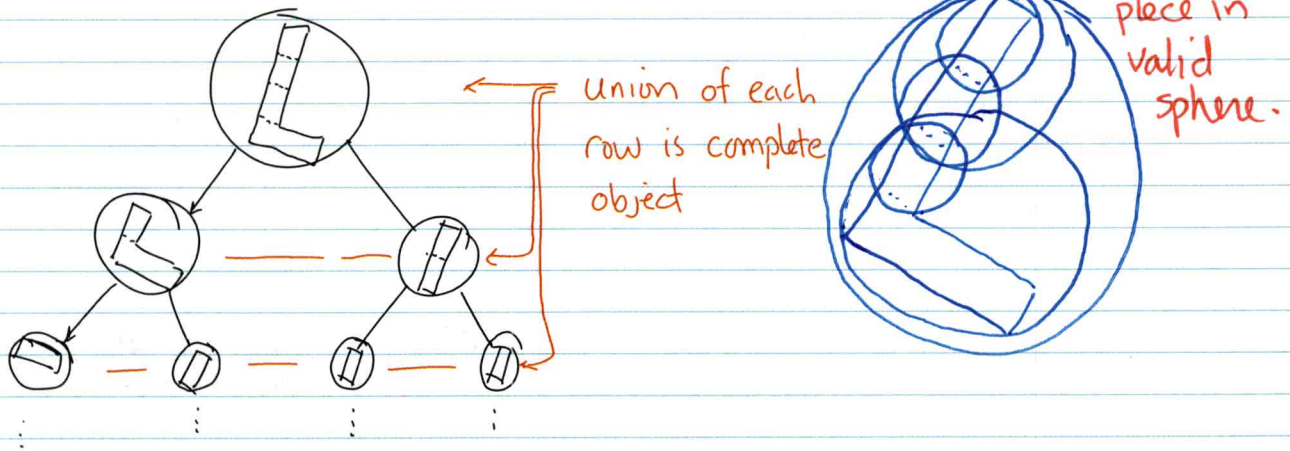 union of each
row is complete
object
piece in
valid
sphere.